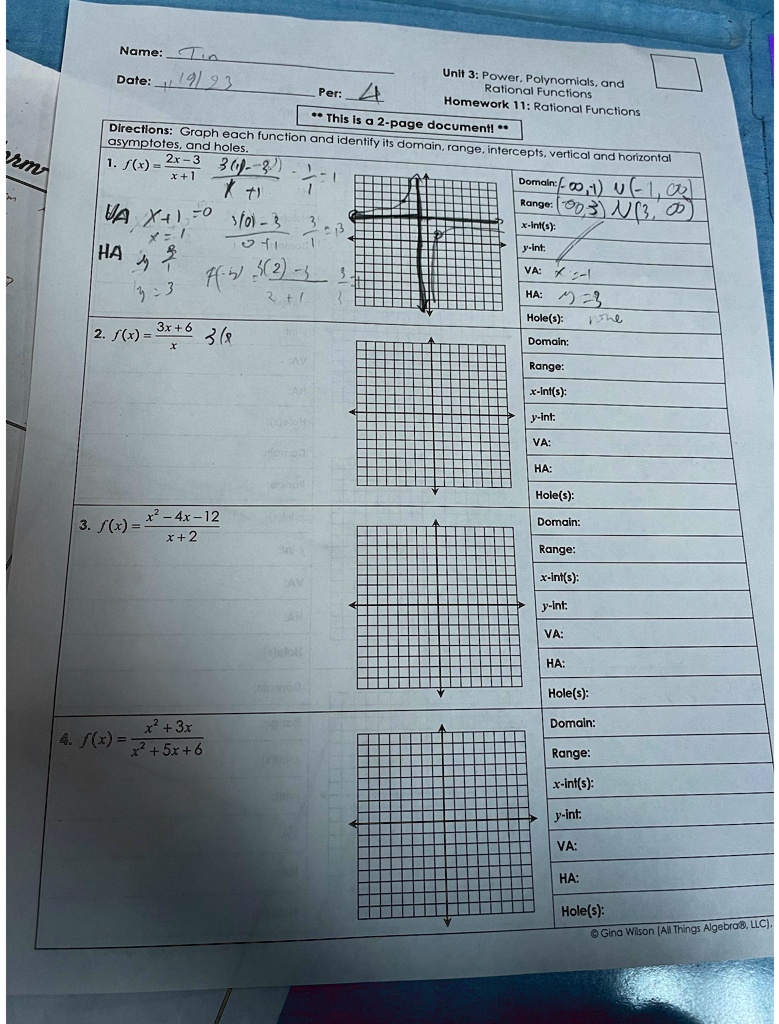 Name: Tin
Date: 11/19/23
Per: 4
Unit 3: Power, Polynomials, and
Rational Functions
Homework 11: Rational Functions
** This is a 2-page document! **
Directions: Graph each function and identify its domain, range, intercepts, vertical and horizontal
asymptotes, and holes.
1. f(x) = (2x − 3)/(x + 1)
VA x+1=0
HA
y = 3
3(0)-3
0+1
3(2)-3
2+1
Domain: (-∞,-1) U (-1, ∞)
Range: (-∞,3) U (3, ∞)
x-int(s):
y-int:
VA: x=-1
HA: y=3
Hole(s): none
2. f(x) = (3x + 6)/x
Domain:
Range:
x-int(s):
y-int:
VA:
HA:
Hole(s):
3. f(x) = (x² − 4x − 12)/(x + 2)
Domain:
Range:
x-int(s):
y-int:
VA:
HA:
Hole(s):
4. f(x) = (x² + 3x)/(x² + 5x + 6)
Domain:
Range:
x-int(s):
y-int:
VA:
HA:
Hole(s):
© Gina Wilson (All Things Algebra®, LLC),